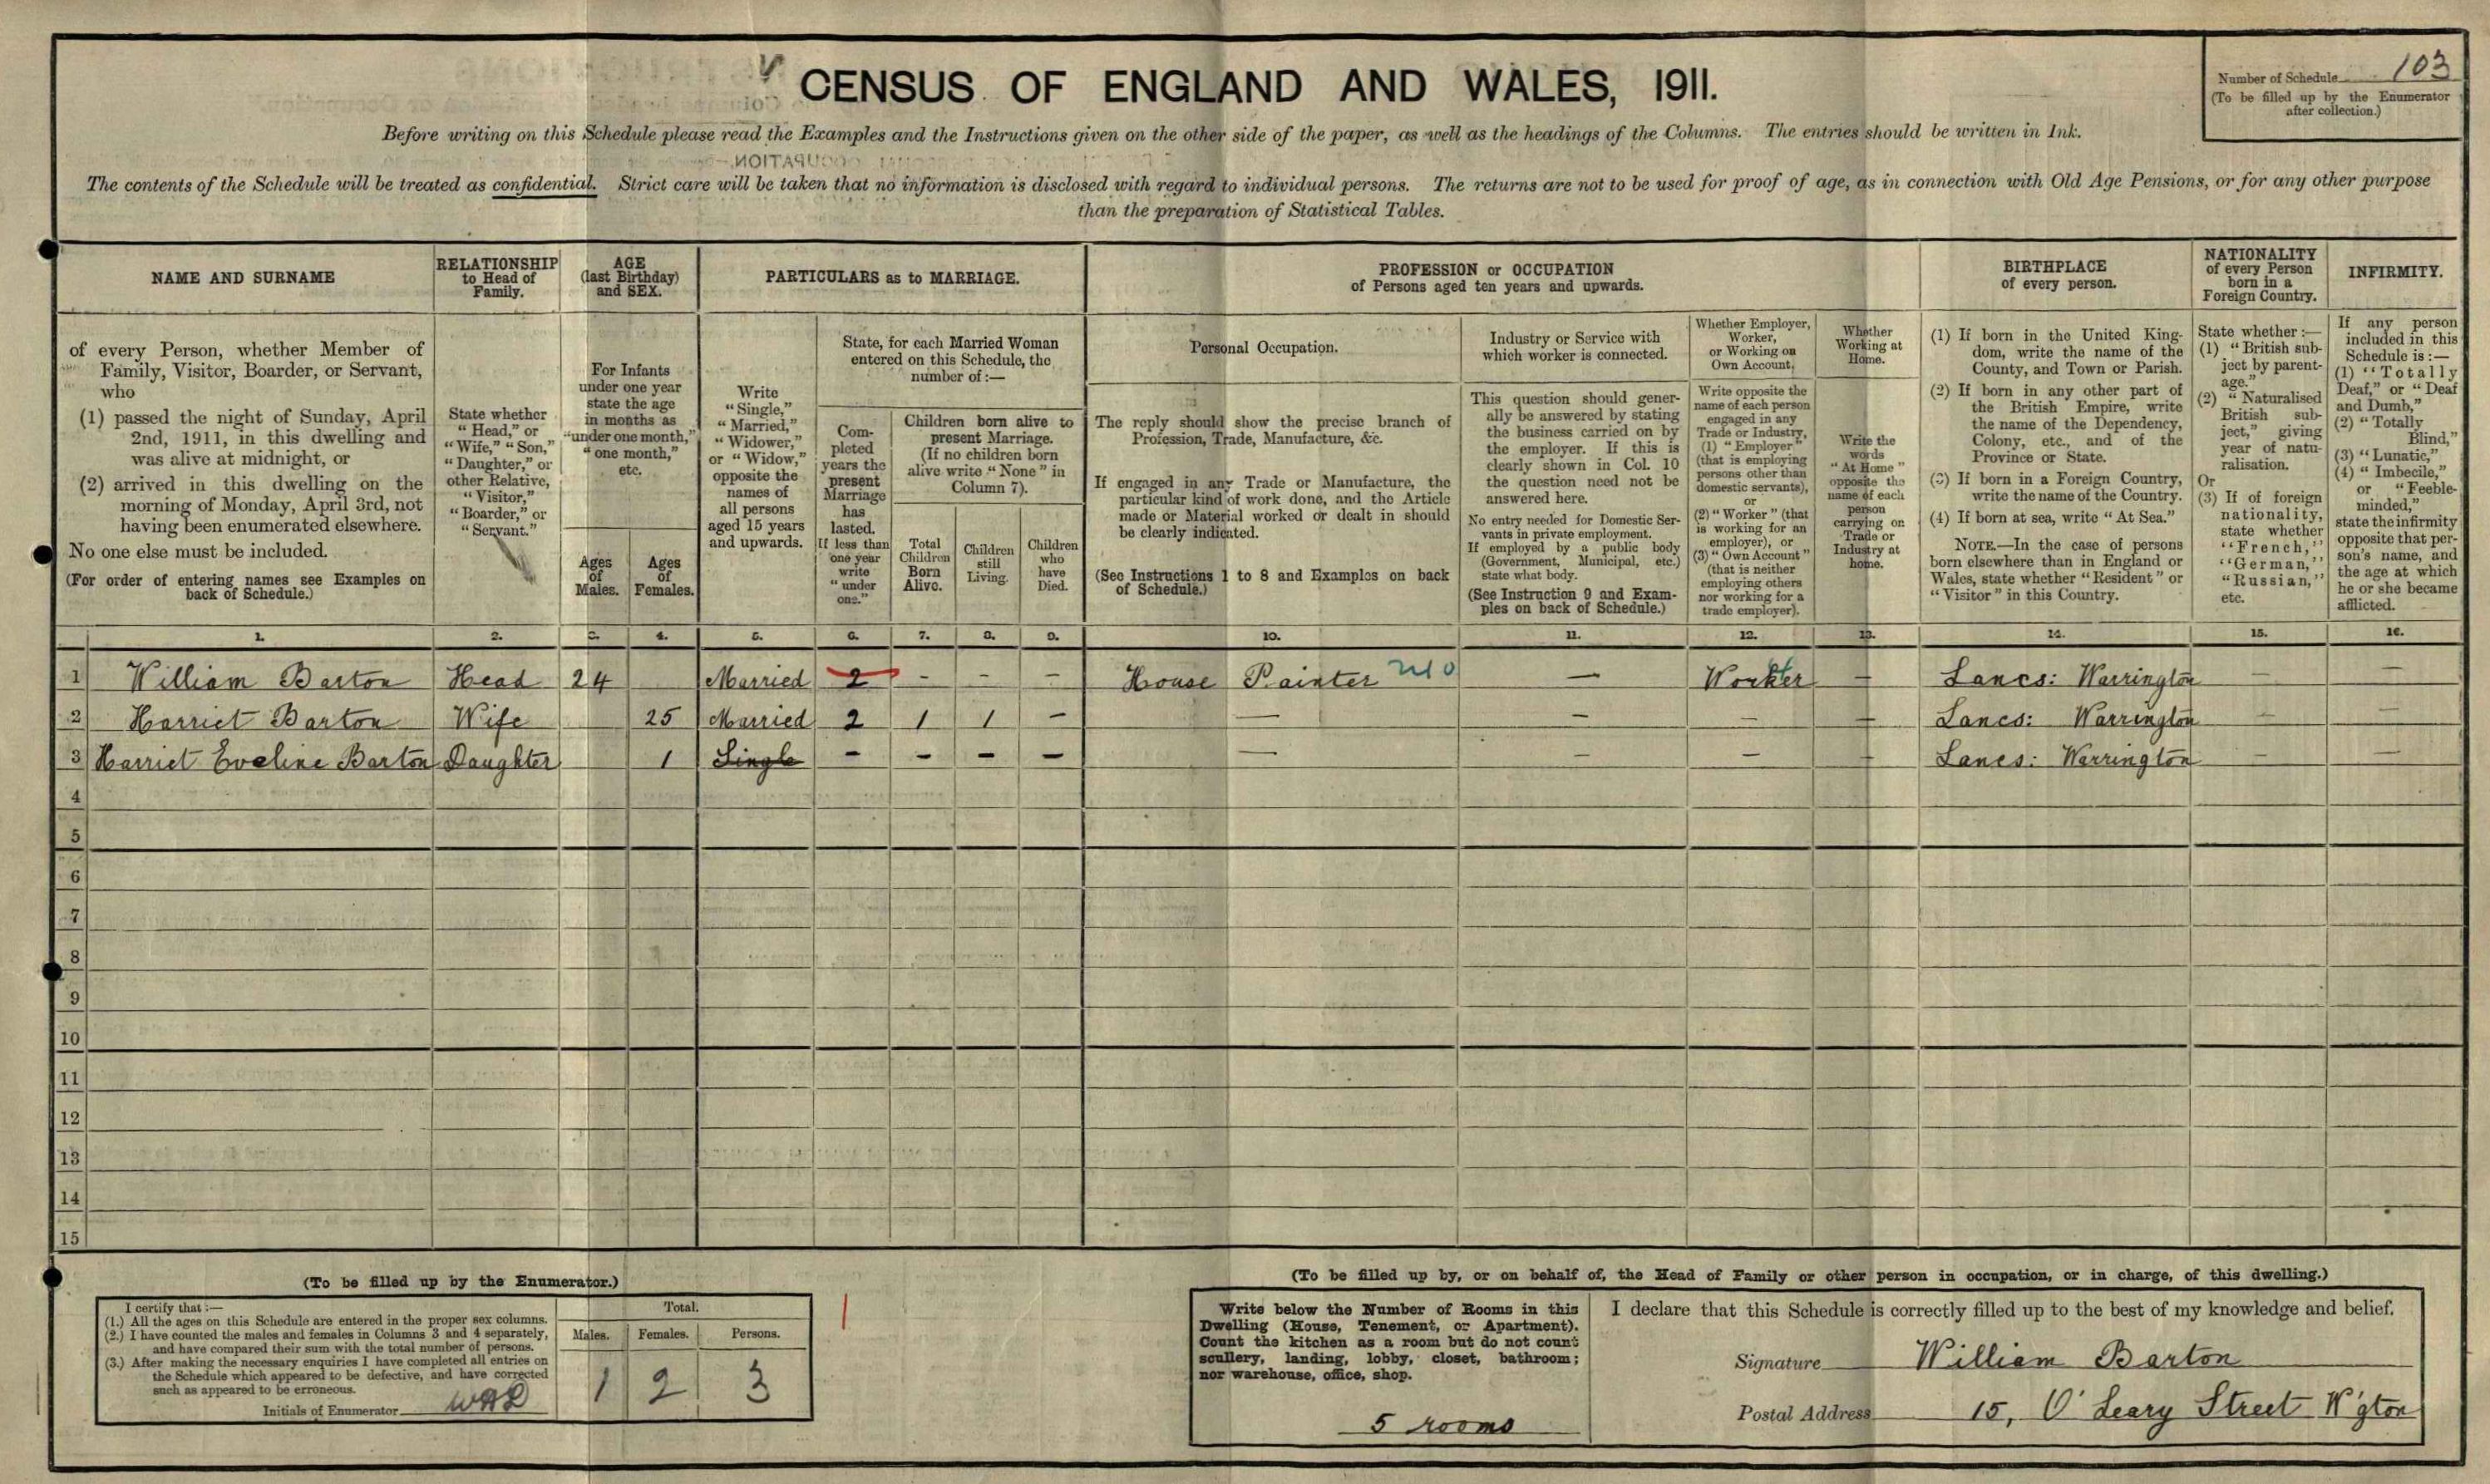 CENSUS OF ENGLAND AND WALES, 1911.
Number of Schedule 103
(To be filled up by the Enumerator
after collection.)
Before writing on this Schedule please read the Examples and the Instructions given on the other side of the paper, as well as the headings of the Columns. The entries should be written in Ink.
The contents of the Schedule will be treated as confidential. Strict care will be taken that no information is disclosed with regard to individual persons. The returns are not to be used for proof of age, as in connection with Old Age Pensions, or for any other purpose
than the preparation of Statistical Tables.
NAME AND SURNAME
of every Person, whether Member of
Family, Visitor, Boarder, or Servant,
who
(1) passed the night of Sunday, April
2nd, 1911, in this dwelling and
was alive at midnight, or
(2) arrived in this dwelling on the
morning of Monday, April 3rd, not
having been enumerated elsewhere.
No one else must be included.
(For order of entering names see Examples on
back of Schedule.)
RELATIONSHIP
to Head of
Family.
State whether
"Head," or
"Wife," "Son,"
"Daughter," or
other Relative,
"Visitor,"
"Boarder," or
"Servant."
AGE
(last Birthday)
and SEX.
For Infants
under one year
state the age
in months as
"under one month,"
"one month,"
etc.
Ages
of
Males.
Ages
of
Females.
PARTICULARS as to MARRIAGE.
Write
"Single,"
"Married,"
"Widower,"
or "Widow,"
opposite the
names of
all persons
aged 15 years
and upwards.
State, for each Married Woman
entered on this Schedule, the
number of:—
Com-
pleted
years the
present
Marriage
has
lasted.
If less than
one year
write
"under
one."
Children born alive to
present Marriage.
(If no children born
alive write "None" in
Column 7).
Total
Children
Born
Alive.
Children
still
Living.
Children
who
have
Died.
PROFESSION or OCCUPATION
of Persons aged ten years and upwards.
Personal Occupation.
The reply should show the precise branch of
Profession, Trade, Manufacture, &c.
If engaged in any Trade or Manufacture, the
particular kind of work done, and the Article
made or Material worked or dealt in should
be clearly indicated.
(See Instructions 1 to 8 and Examples on back
of Schedule.)
Industry or Service with
which worker is connected.
This question should gener-
ally be answered by stating
the business carried on by
the employer. If this is
clearly shown in Col. 10
the question need not be
answered here.
No entry needed for Domestic Ser-
vants in private employment.
If employed by a public body
(Government, Municipal, etc.)
state what body.
(See Instruction 9 and Exam-
ples on back of Schedule.)
Whether Employer,
Worker,
or Working on
Own Account.
Write opposite the
name of each person
engaged in any
Trade or Industry,
(1) "Employer"
(that is employing
persons other than
domestic servants),
or
(2) "Worker" (that
is working for an
employer), or
(3) "Own Account"
(that is neither
employing others
nor working for a
trade employer).
Whether
Working at
Home.
Write the
words
"At Home"
opposite the
name of each
person
carrying on
Trade or
Industry at
home.
BIRTHPLACE
of every person.
(1) If born in the United King-
dom, write the name of the
County, and Town or Parish.
(2) If born in any other part of
the British Empire, write
the name of the Dependency,
Colony, etc., and of the
Province or State.
(3) If born in a Foreign Country,
write the name of the Country.
(4) If born at sea, write "At Sea."
NOTE.—In the case of persons
born elsewhere than in England or
Wales, state whether "Resident" or
"Visitor" in this Country.
NATIONALITY
of every Person
born in a
Foreign Country.
State whether :—
(1) "British sub-
ject by parent-
age."
(2) "Naturalised
British sub-
ject," giving
year of natu-
ralisation.
Or
(3) If of foreign
nationality,
state whether
"French,"
"German,"
"Russian,"
etc.
INFIRMITY.
If any person
included in this
Schedule is:—
(1) "Totally
Deaf," or "Deaf
and Dumb,"
(2) "Totally
Blind,"
(3) "Lunatic,"
(4) "Imbecile,"
or "Feeble-
minded,"
state the infirmity
opposite that per-
son's name, and
the age at which
he or she became
afflicted.
1. 2. 3. 4. 5. 6. 7. 8. 9. 10. 11. 12. 13. 14. 15. 16.
1 William Barton Head 24 Married 2 - - - House Painter 210 — Worker — Lancs: Warrington — —
2 Harriet Barton Wife 25 Married 2 1 1 - — — — — Lancs: Warrington — —
3 Harriet Eveline Barton Daughter 1 Single - - - - — — — — Lancs: Warrington — —
4
5
6
7
8
9
10
11
12
13
14
15
(To be filled up by the Enumerator.)
I certify that :—
(1.) All the ages on this Schedule are entered in the proper sex columns.
(2.) I have counted the males and females in Columns 3 and 4 separately,
and have compared their sum with the total number of persons.
(3.) After making the necessary enquiries I have completed all entries on
the Schedule which appeared to be defective, and have corrected
such as appeared to be erroneous.
Initials of Enumerator
Total.
Males. Females. Persons.
1 2 3
(To be filled up by, or on behalf of, the Head of Family or other person in occupation, or in charge, of this dwelling.)
Write below the Number of Rooms in this
Dwelling (House, Tenement, or Apartment).
Count the kitchen as a room but do not count
scullery, landing, lobby, closet, bathroom;
nor warehouse, office, shop.
5 rooms
I declare that this Schedule is correctly filled up to the best of my knowledge and belief.
Signature William Barton
Postal Address 15, O'Leary Street W'gton